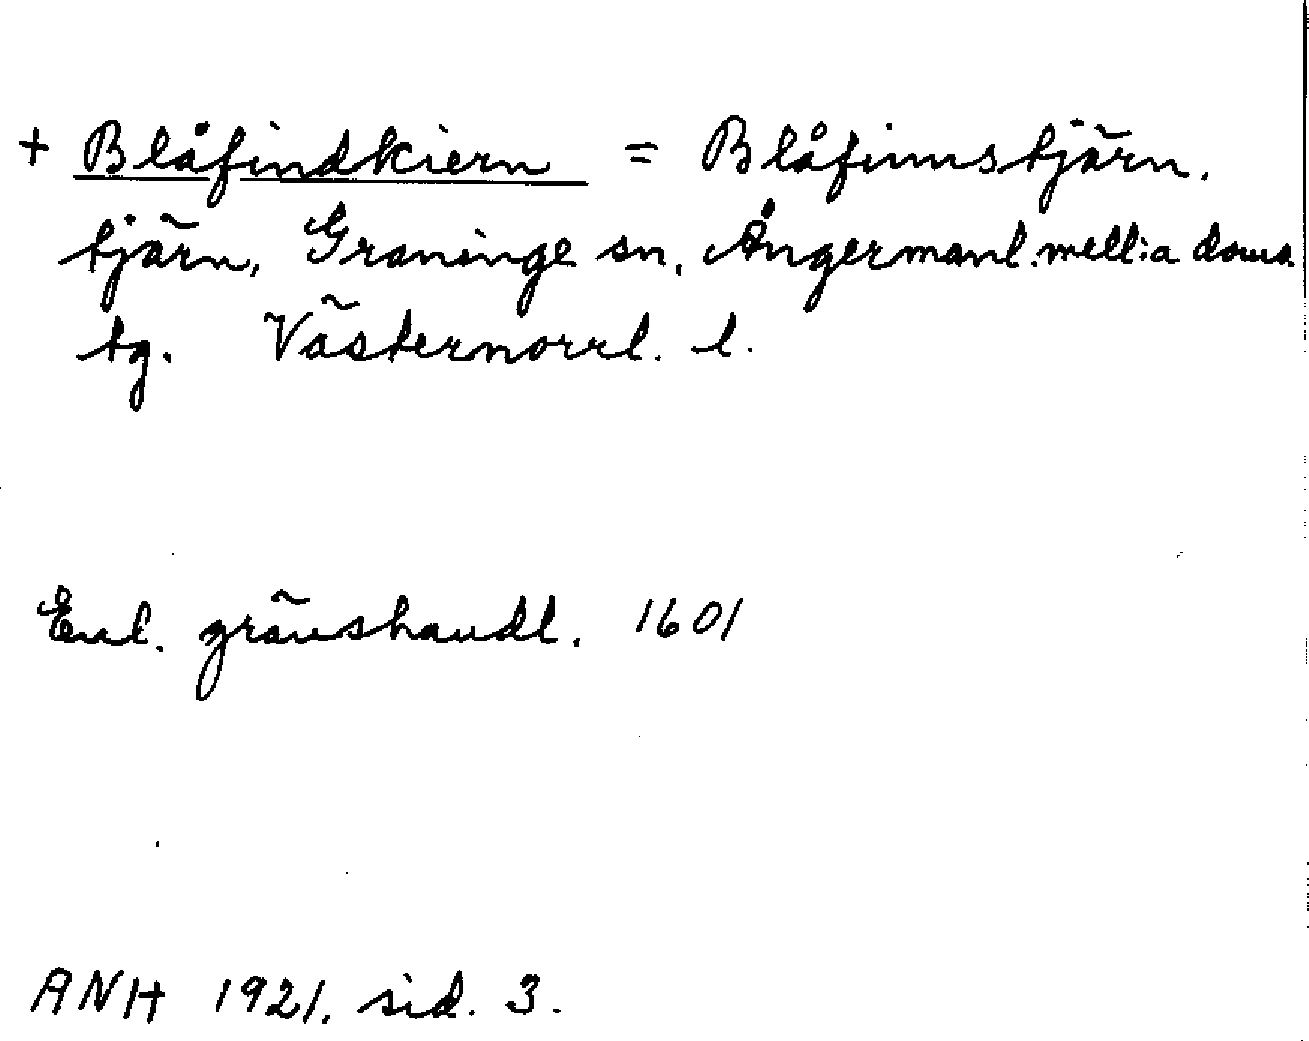 + Blåfindkiern = Blåfinnstjärn.
tjärn, Graninge sn, Ångermanl. mell:a doms.
tg. Västernorrl. l.
Enl. gränshandl. 1601
ANH 1921. sid. 3.